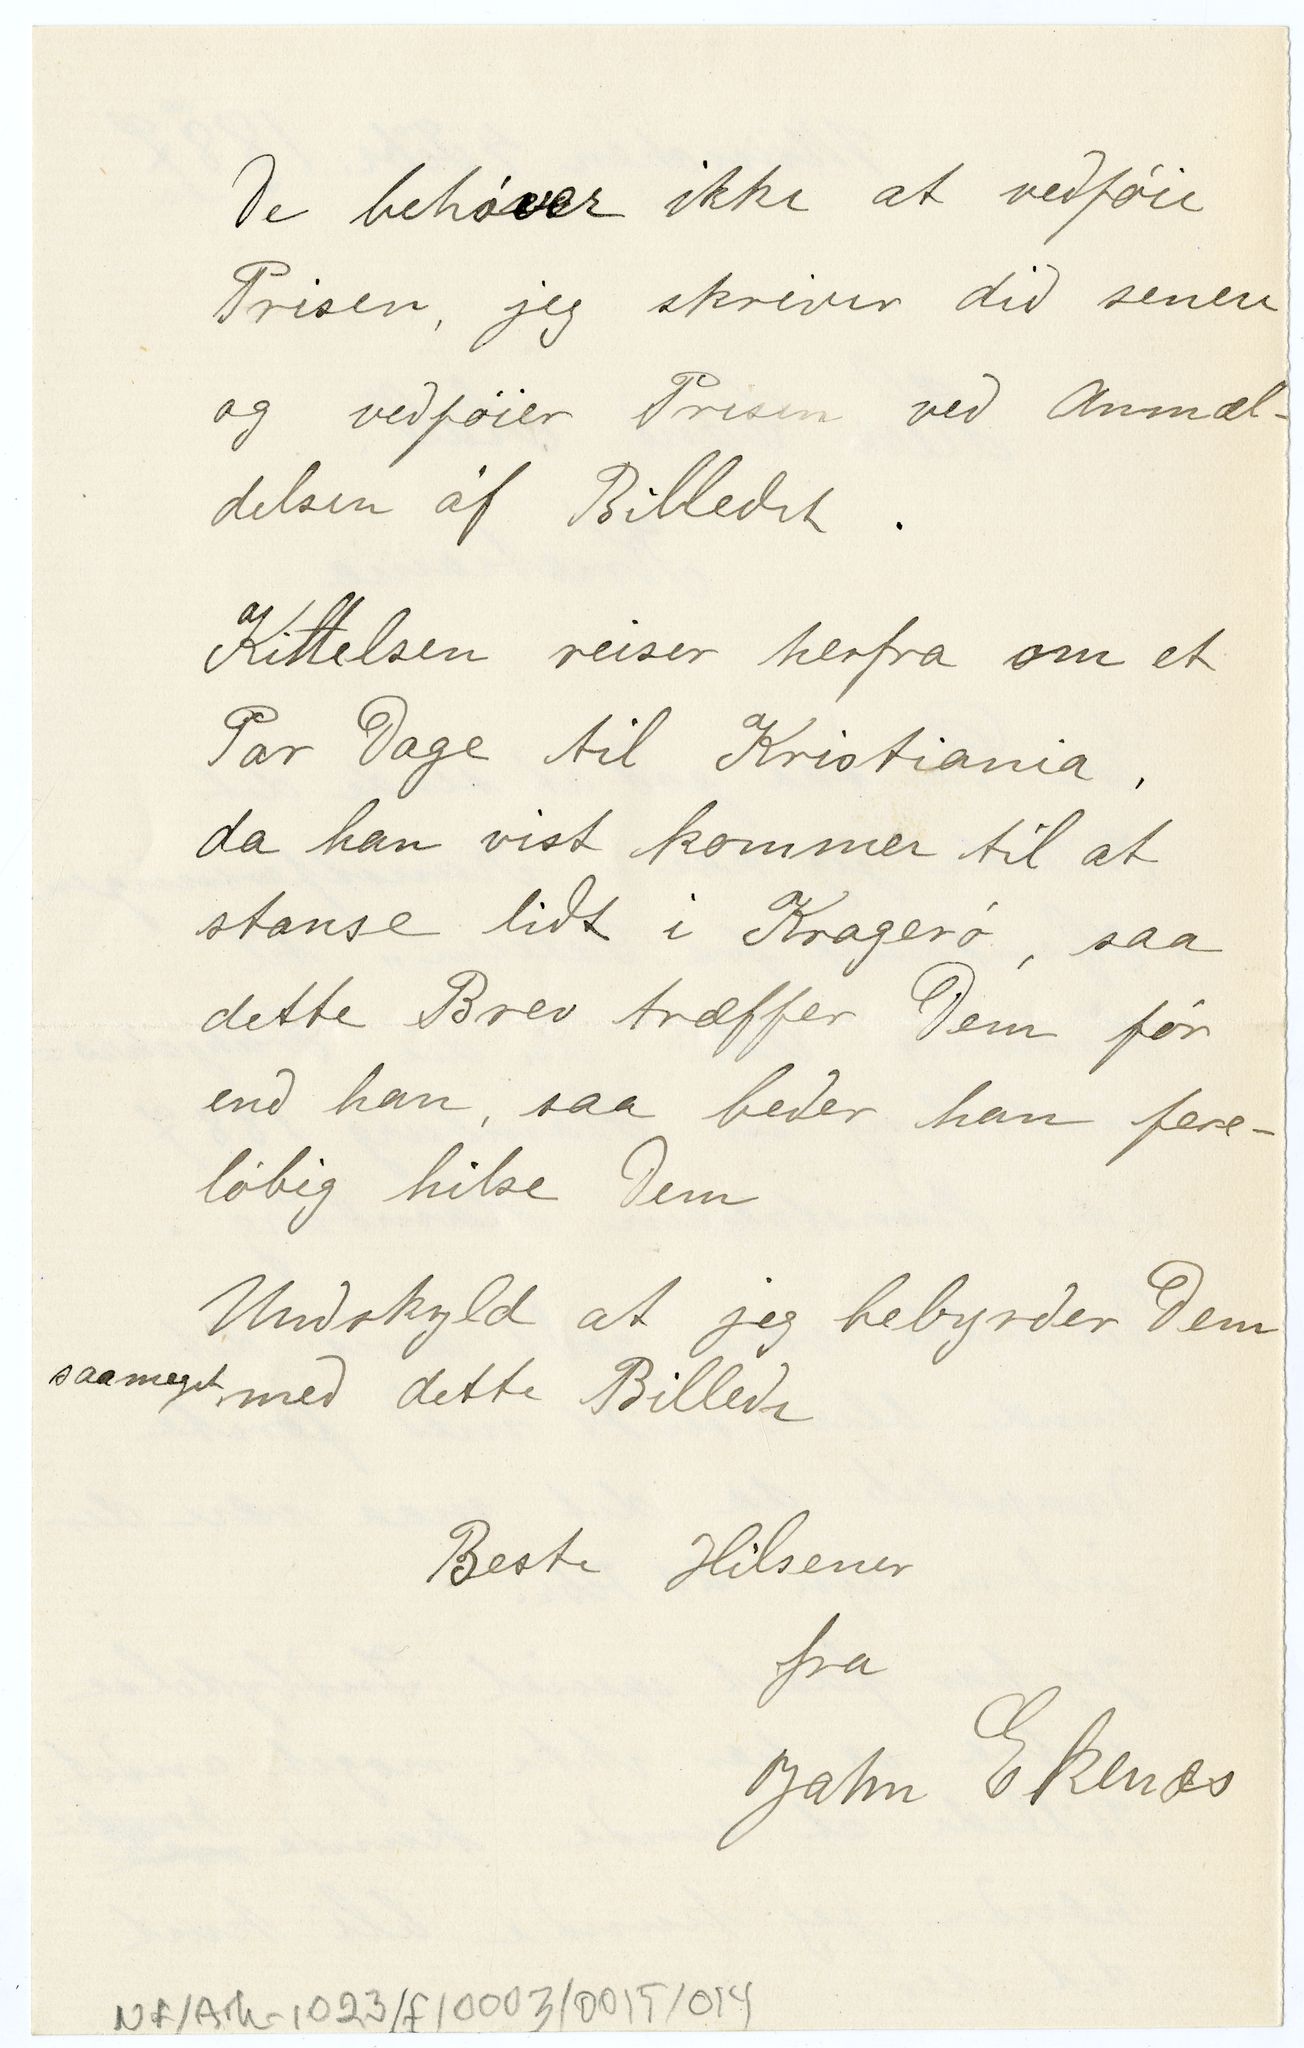 De behøver ikke at vedføie
Prisen, jeg skriver did senere
og vedføier Prisen ved Anmæl-
delsen af Billedet.
Kittelsen reiser herfra om et
Par Dage til Kristiania,
da han vist kommer til at
stanse lidt i Kragerø, saa
dette Brev træffer Dem før
end han, saa beder han fore-
løbig hilse Dem
Undskyld at jeg bebyrder Dem
saameget med dette Billede
Beste Hilsener
fra
Jahn Ekenæs